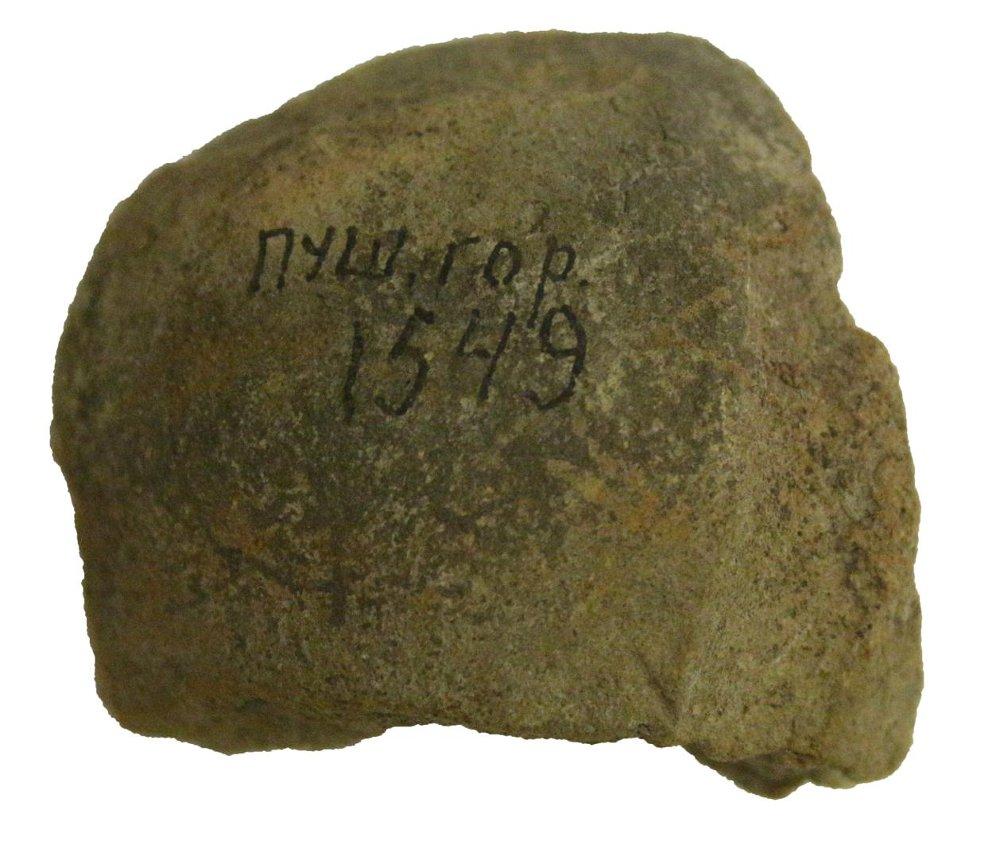 пуш. гор.
1549